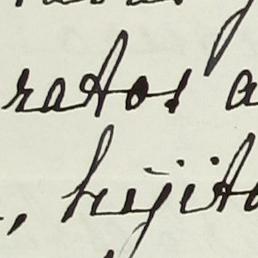 ratos a
, hijito